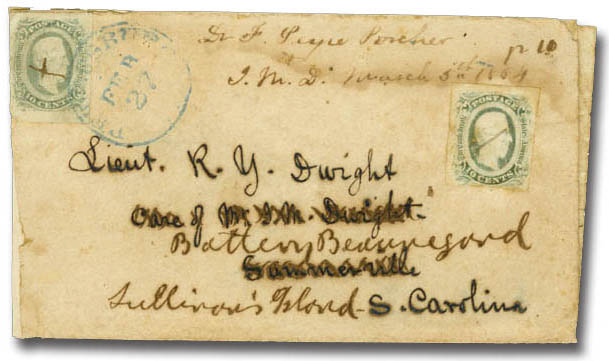 Dr. F. Peyre Porcher
p 10
J. M. D. March 5th 1864
POSTAGE
10 CENTS
FEB
27
POSTAGE
10 CENTS
Lieut. R. Y. Dwight
Care of Mr. I. M. Dwight.
Battery Beauregard
Summerville
Sullivan's Island - S. Carolina